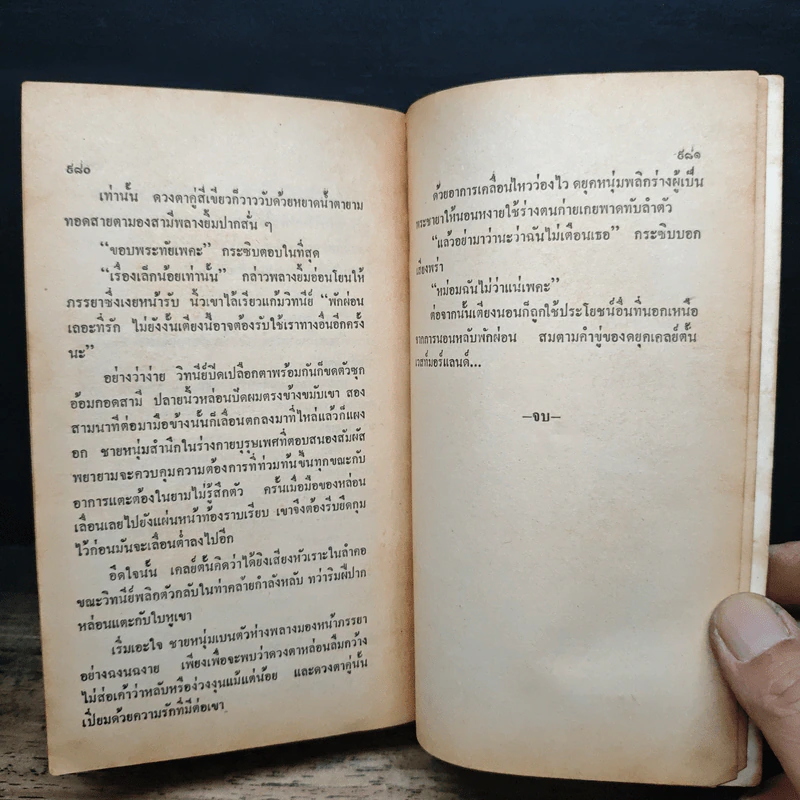 ๕๘๐
เท่านั้น ดวงตาคู่สีเขียวก็วาววับด้วยหยาดน้ำตายาม
ทอดสายตามองสามีพลางยิ้มปากสั่น ๆ
“ขอบพระทัยเพคะ” กระซิบตอบในที่สุด
“เรื่องเล็กน้อยเท่านั้น” กล่าวพลางยิ้มอ่อนโยนให้
ภรรยาซึ่งเงยหน้ารับ นิ้วเขาไล้เรียวแก้มวิทนีย์ “พักผ่อน
เถอะที่รัก ไม่ยังงั้นเตียงนี้อาจต้องรับใช้เราทางอื่นอีกครั้ง
นะ”
อย่างว่าง่าย วิทนีย์ปิดเปลือกตาพร้อมกันก็ขดตัวซุก
อ้อมกอดสามี ปลายนิ้วหล่อนปัดผมตรงข้างขมับเขา สอง
สามนาทีต่อมามือข้างนั้นก็เลื่อนตกลงมาที่ไหล่แล้วก็แผง
อก ชายหนุ่มสำนึกในร่างกายบุรุษเพศที่ตอบสนองสัมผัส
พยายามจะควบคุมความต้องการที่ท่วมท้นขึ้นทุกขณะกับ
อาการแตะต้องในยามไม่รู้สึกตัว ครั้นเมื่อมือของหล่อน
เลื่อนเลยไปยังแผ่นหน้าท้องราบเรียบ เขาจึงต้องรีบยึดกุม
ไว้ก่อนมันจะเลื่อนต่ำลงไปอีก
อึดใจนั้น เคลย์ตั้นคิดว่าได้ยิงเสียงหัวเราะในลำคอ
ขณะวิทนีย์พลิกตัวกลับในท่าคล้ายกำลังหลับ ทว่าริมฝีปาก
หล่อนแตะกับใบหูเขา
เริ่มเอะใจ ชายหนุ่มเบนตัวห่างพลางมองหน้าภรรยา
อย่างฉงนฉงาย เพียงเพื่อจะพบว่าดวงตาหล่อนลืมกว้าง
ไม่ส่อเค้าว่าหลับหรือง่วงงุนแม้แต่น้อย และดวงตาคู่นั้น
เปี่ยมด้วยความรักที่มีต่อเขา
๕๘๑
ด้วยอาการเคลื่อนไหวว่องไว ดยุคหนุ่มพลิกร่างผู้เป็น
พระชายาให้นอนหงายใช้ร่างตนก่ายเกยพาดทับลำตัว
“แล้วอย่ามาว่านะว่าฉันไม่เตือนเธอ” กระซิบบอก
เสียงพร่า
“หม่อมฉันไม่ว่าแน่เพคะ”
ต่อจากนั้นเตียงนอนก็ถูกใช้ประโยชน์อื่นที่นอกเหนือ
จากการนอนหลับพักผ่อน สมตามคำขู่ของดยุคเคลย์ตั้น
เวสท์มอร์แลนด์...
—จบ—